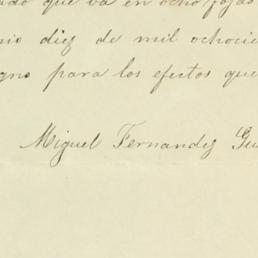 que va en ocho fojas
diez de mil ochocie
para los efectos que
Miguel Fernandez Gu